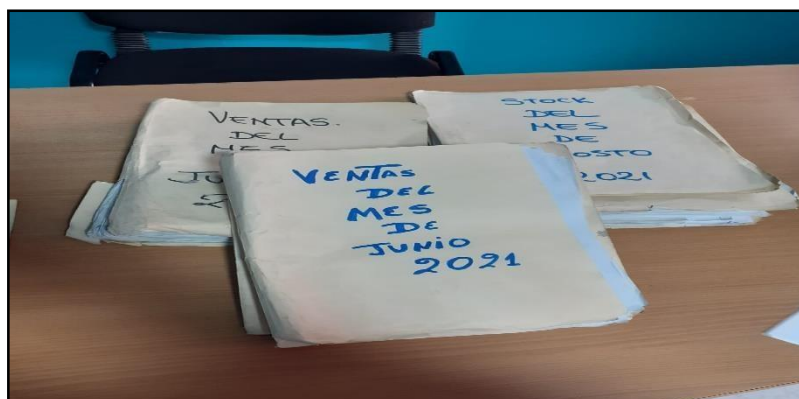 VENTAS.
DEL
MES
STOCK
DEL
MES
DE
2021
VENTAS
DEL
MES
DE
JUNIO
2021